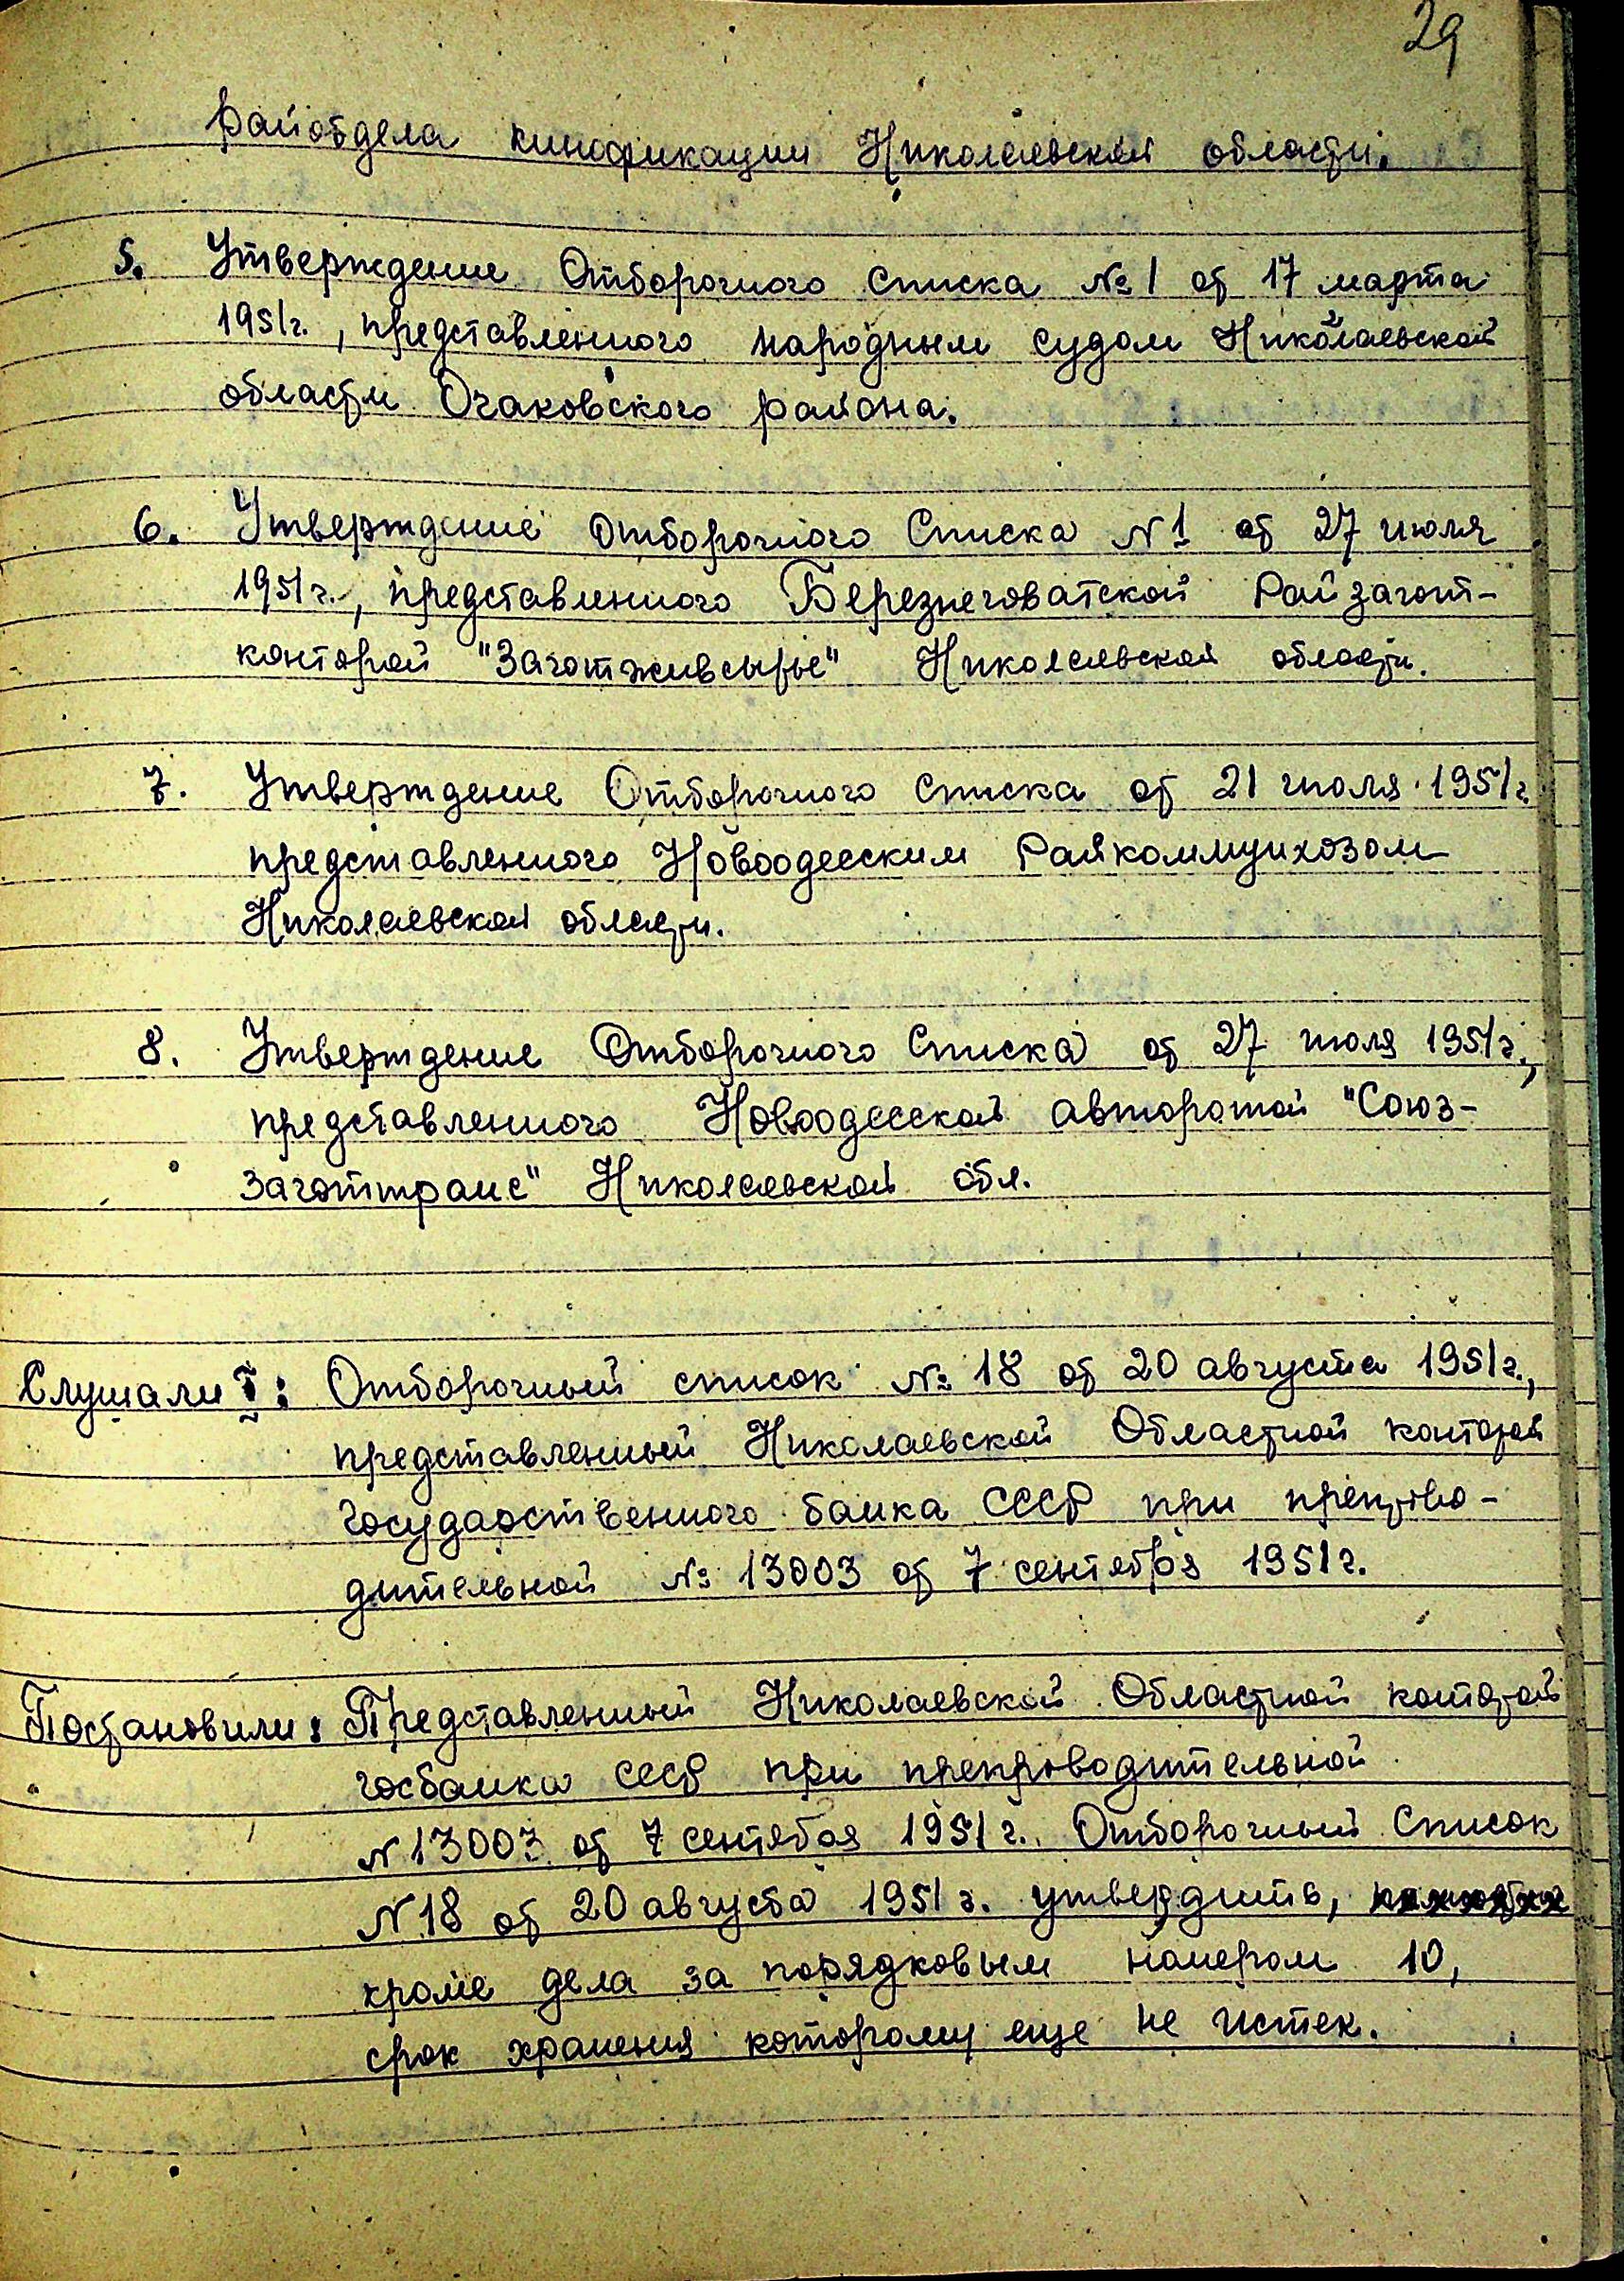 29
райотдела кинофикации Николаевской области.
5. Утверждение Отборочного списка № 1 от 17 марта
1951г., представленного народным судом Николаевской
области Очаковского района.
6. Утверждение Отборочного Списка N 1 от 27 июля
1951г., представленного Березнеговатской Райзагот-
конторой "Заготживсырье" Николаевской области.
7. Утверждение Отборочного Списка от 21 июля 1951г.
представленного Новоодесским Райкоммунхозом
Николаевской области.
8. Утверждение Отборочного Списка от 27 июля 1951г.,
представленного Новоодесской авторотой "Союз-
заготтранс" Николаевской обл.
Слушали I: Отборочный список № 18 от 20 августа 1951г.,
представленный Николаевской Областной конторой
Государственного банка СССР при
дительной № 13003 от 7 сентября 1951г.
Постановили: Представленный Николаевской Областной конторой
госбанка СССР при препроводительной
N 13003 от 7 сентября 1951г. Отборочный Список
N 18 от 20 августа 1951г. утвердить,
кроме дела за порядковым номером 10,
срок хранения которому еще не истек.